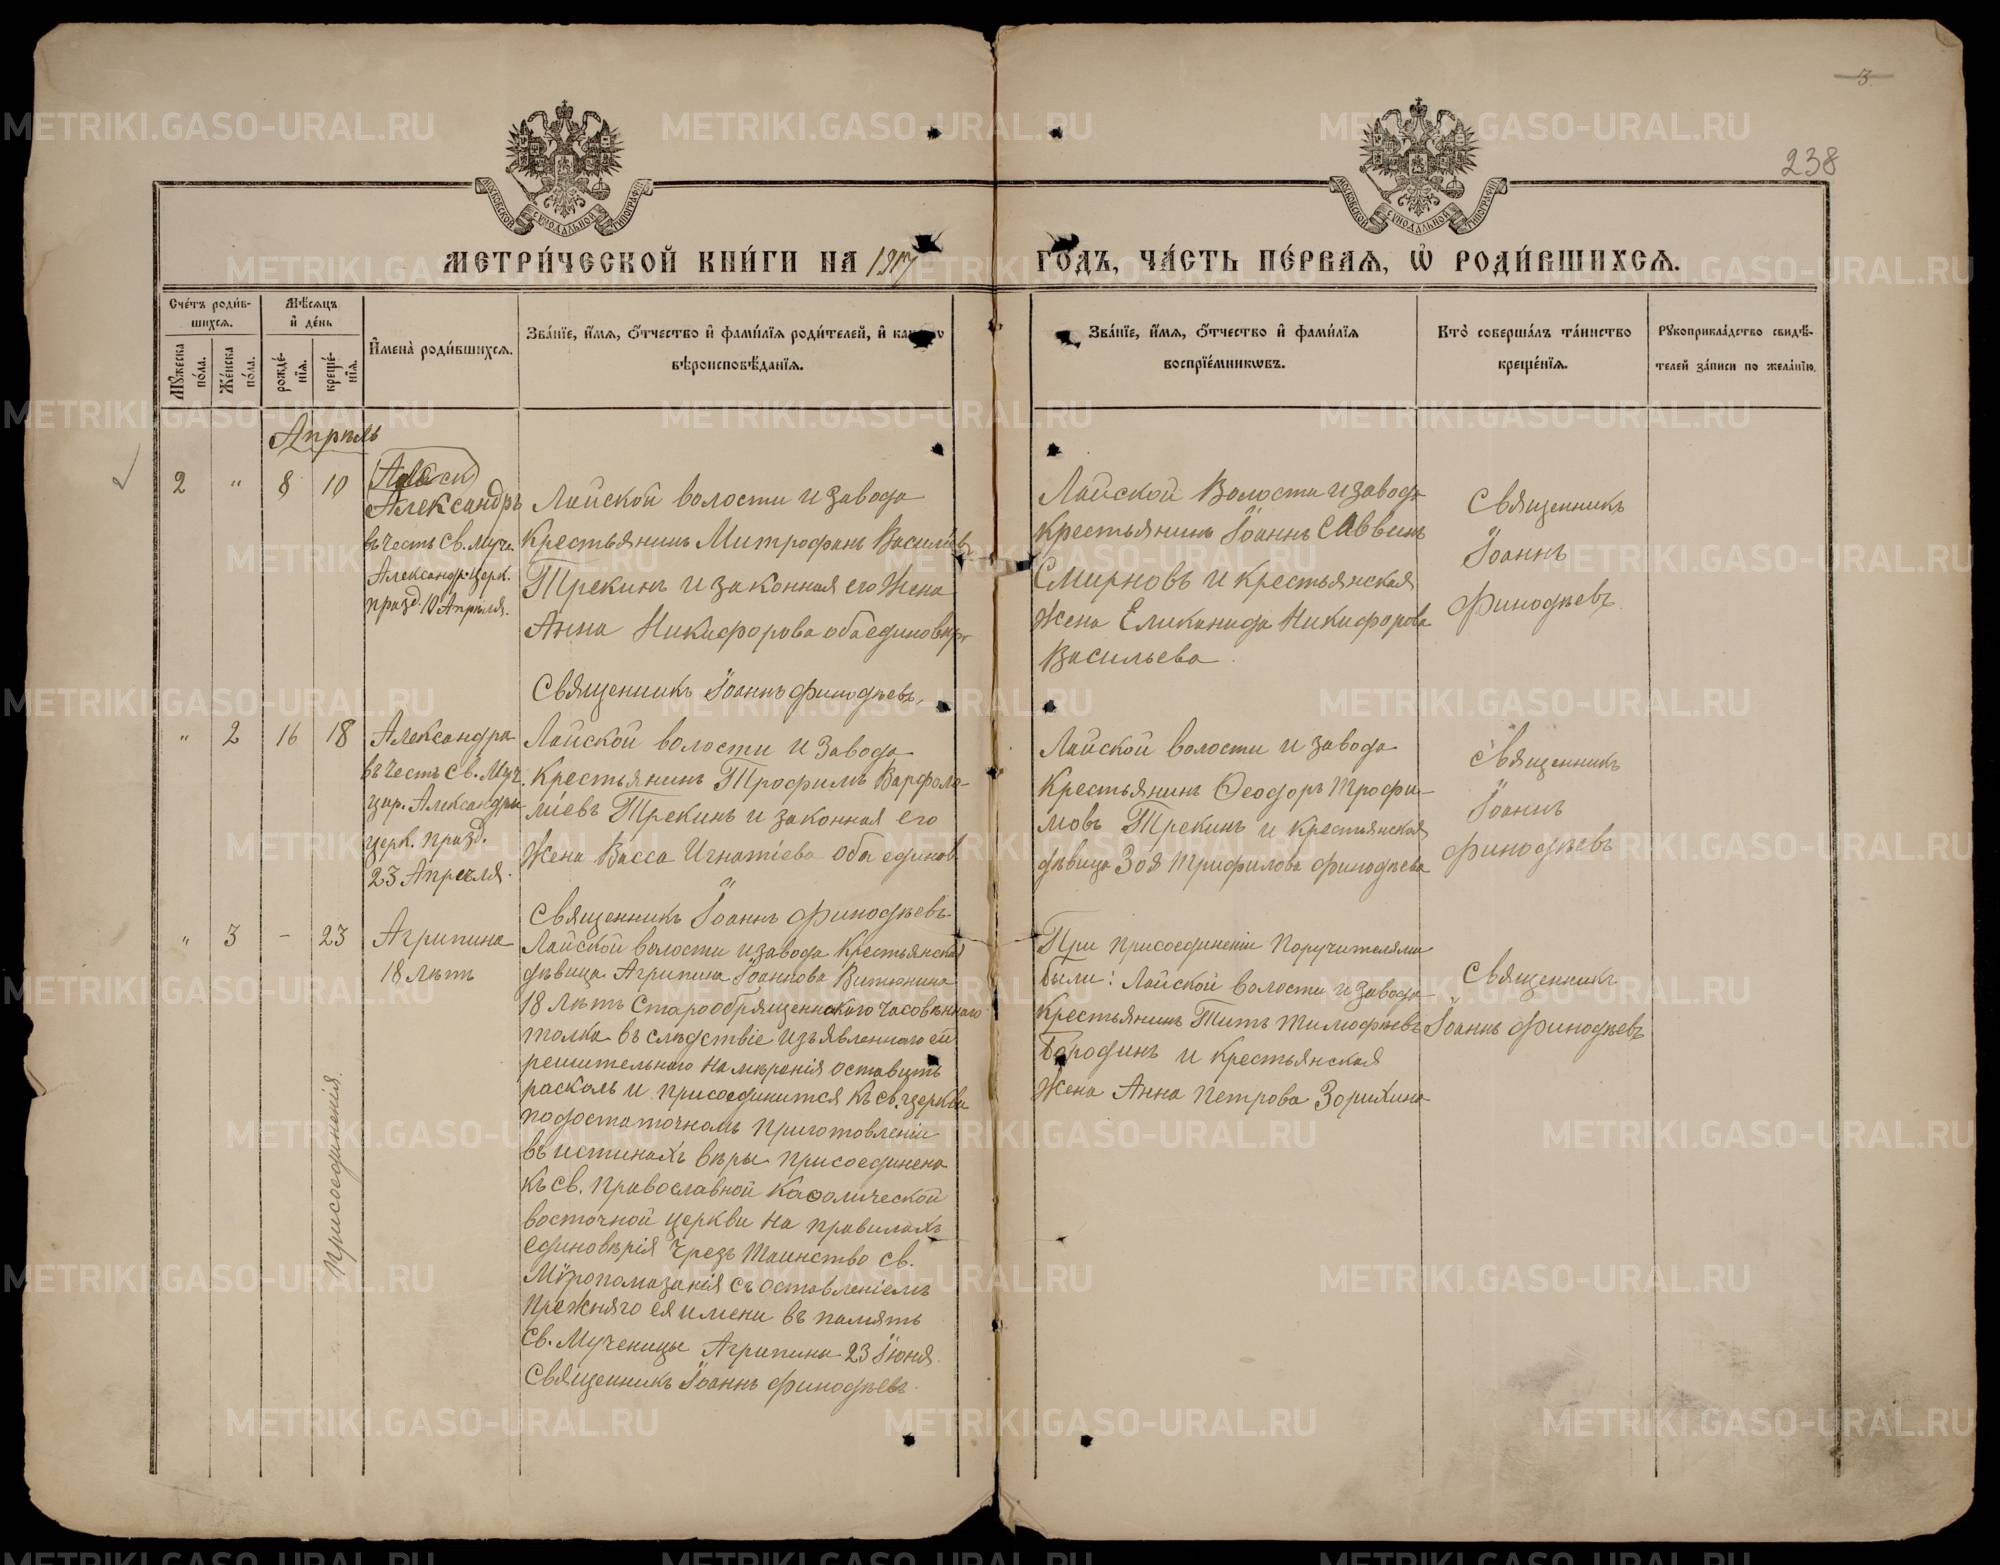 3
238
МОСКОВСКОЙ СѴНОДАЛЬНОЙ ТИПОГРАФІИ
МОСКОВСКОЙ СѴНОДАЛЬНОЙ ТИПОГРАФІИ
МЕТРИ́ЧЕСКОЙ КНИ́ГИ НА 1917
ГО́ДЪ, ЧА́СТЬ ПЕ́РВАѦ, Ѽ РОДИ́ВШИХСѦ.
Сче́тъ роди́в-
шихсѧ.
Мꙋ́жеска
по́ла.
Же́нска
по́ла.
Мѣ́сѧцъ
и҆ де́нь
рожде́-
нїѧ.
креще́-
нїѧ.
И҆мена̀ роди́вшихсѧ.
Зва́нїе, и҆́мѧ, ѻ҆́тчество и҆ фами́лїѧ роди́телей, и҆
вѣроисповѣ́данїѧ.
Зва́нїе, и҆́мѧ, ѻ҆́тчество и҆ фами́лїѧ
воспрїе́мникѡвъ.
Кто̀ соверша́лъ та́инство
креще́нїѧ.
Рꙋкоприкла́дство свидѣ́-
телей за́писи по жела́нїю.
Апрѣль
2 " 8 10
Александръ
въ честь Св. Муч.
Александр. церк.
празд. 10 Апрѣля.
Лайской волости и завода
Крестьянинъ Митрофанъ Василіевъ
Трекинъ и законная его жена
Анна Никифорова оба единовѣр.
Священникъ Іоаннъ Финодѣевъ.
Лайской Волости и завода
Крестьянинъ Іоаннъ Саввинъ
Смирновъ и крестьянская
жена Еликанида Никифорова
Васильева.
Священникъ
Іоаннъ
Финодѣевъ
" 2 16 18
Александра
въ честь Св. Муч.
цар. Александры
церк. празд.
23 Апрѣля.
Лайской волости и завода
Крестьянинъ Трофимъ Варфоло-
меевъ Трекинъ и законная его
жена Васса Игнатіева оба единов.
Священникъ Іоаннъ Финодѣевъ
Лайской волости и завода
Крестьянинъ Ѳеодоръ Трофи-
мовъ Трекинъ и Крестьянская
дѣвица Зоя Трифилова Финодѣева
Священникъ
Іоаннъ
Финодѣевъ
" 3 - 23
присоединенія.
Агрипина
18 лѣтъ
Лайской волости и завода Крестьянская
дѣвица Агрипина Іоаннова Витюнина
18 лѣтъ Старообрященского часовѣннаго
толка въ слѣдствіе изъявленного ей
решительного намѣренія оставить
расколъ и присоединится къ св. церкви
подостаточномъ приготовленіи
въ истинахъ вѣры присоединена
къ св. православной Каѳолической
восточной церкви на правилахъ
единовѣрія чрезъ таинство св.
Мѵропомазанія съ оставленіемъ
прежняго ея имени въ память
св. Мученицы Агрипины 23 Іюня.
Священникъ Іоаннъ Финодѣевъ.
При присоединеніи Поручителями
были: Лайской волости и завода
Крестьянинъ Титъ Тимофѣевъ
Бородинъ и Крестьянская
жена Анна Петрова Зорихина
Священникъ
Іоаннъ Финодѣевъ
METRIKI.GASO-URAL.RU